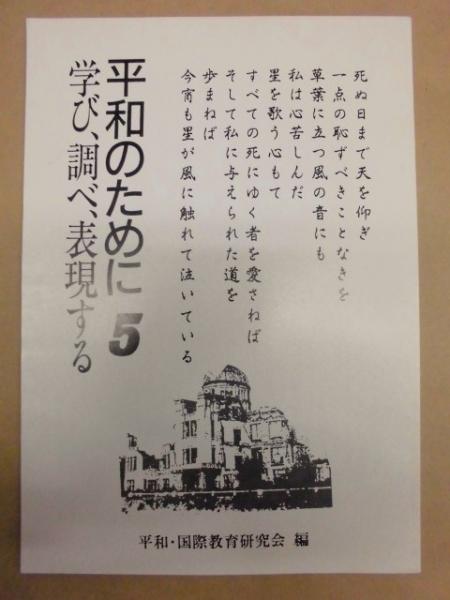 死ぬ日まで天を仰ぎ
一点の恥ずべきことなきを
草葉に立つ風の音にも
私は心苦しんだ
星を歌う心もて
すべての死にゆく者を愛さねば
そして私に与えられた道を
歩まねば
今宵も星が風に触れて泣いている
平和のために 5
学び、調べ、表現する
平和・国際教育研究会 編